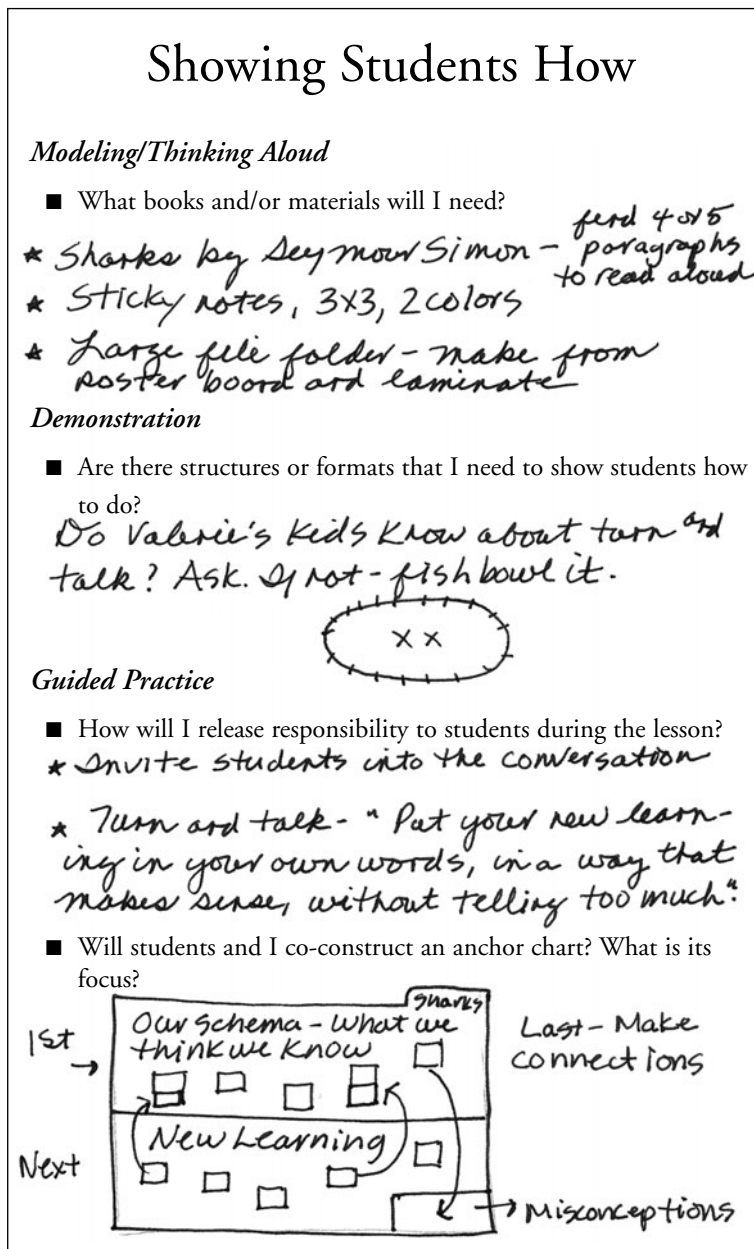 Showing Students How
Modeling/Thinking Aloud
■ What books and/or materials will I need?
* Sharks by Seymour Simon – find 4 or 5
paragraphs
to read aloud
* Sticky notes, 3x3, 2 colors
* Large file folder – make from
poster board and laminate
Demonstration
■ Are there structures or formats that I need to show students how
to do?
Do Valerie's kids know about turn and
talk? Ask. If not – fishbowl it.
x x
Guided Practice
■ How will I release responsibility to students during the lesson?
* Invite students into the conversation
* Turn and talk – "Put your new learn-
ing in your own words, in a way that
makes sense, without telling too much."
■ Will students and I co-construct an anchor chart? What is its
focus?
Sharks
1st
Our schema – what we
think we know
Last – Make
connections
Next
New Learning
Misconceptions